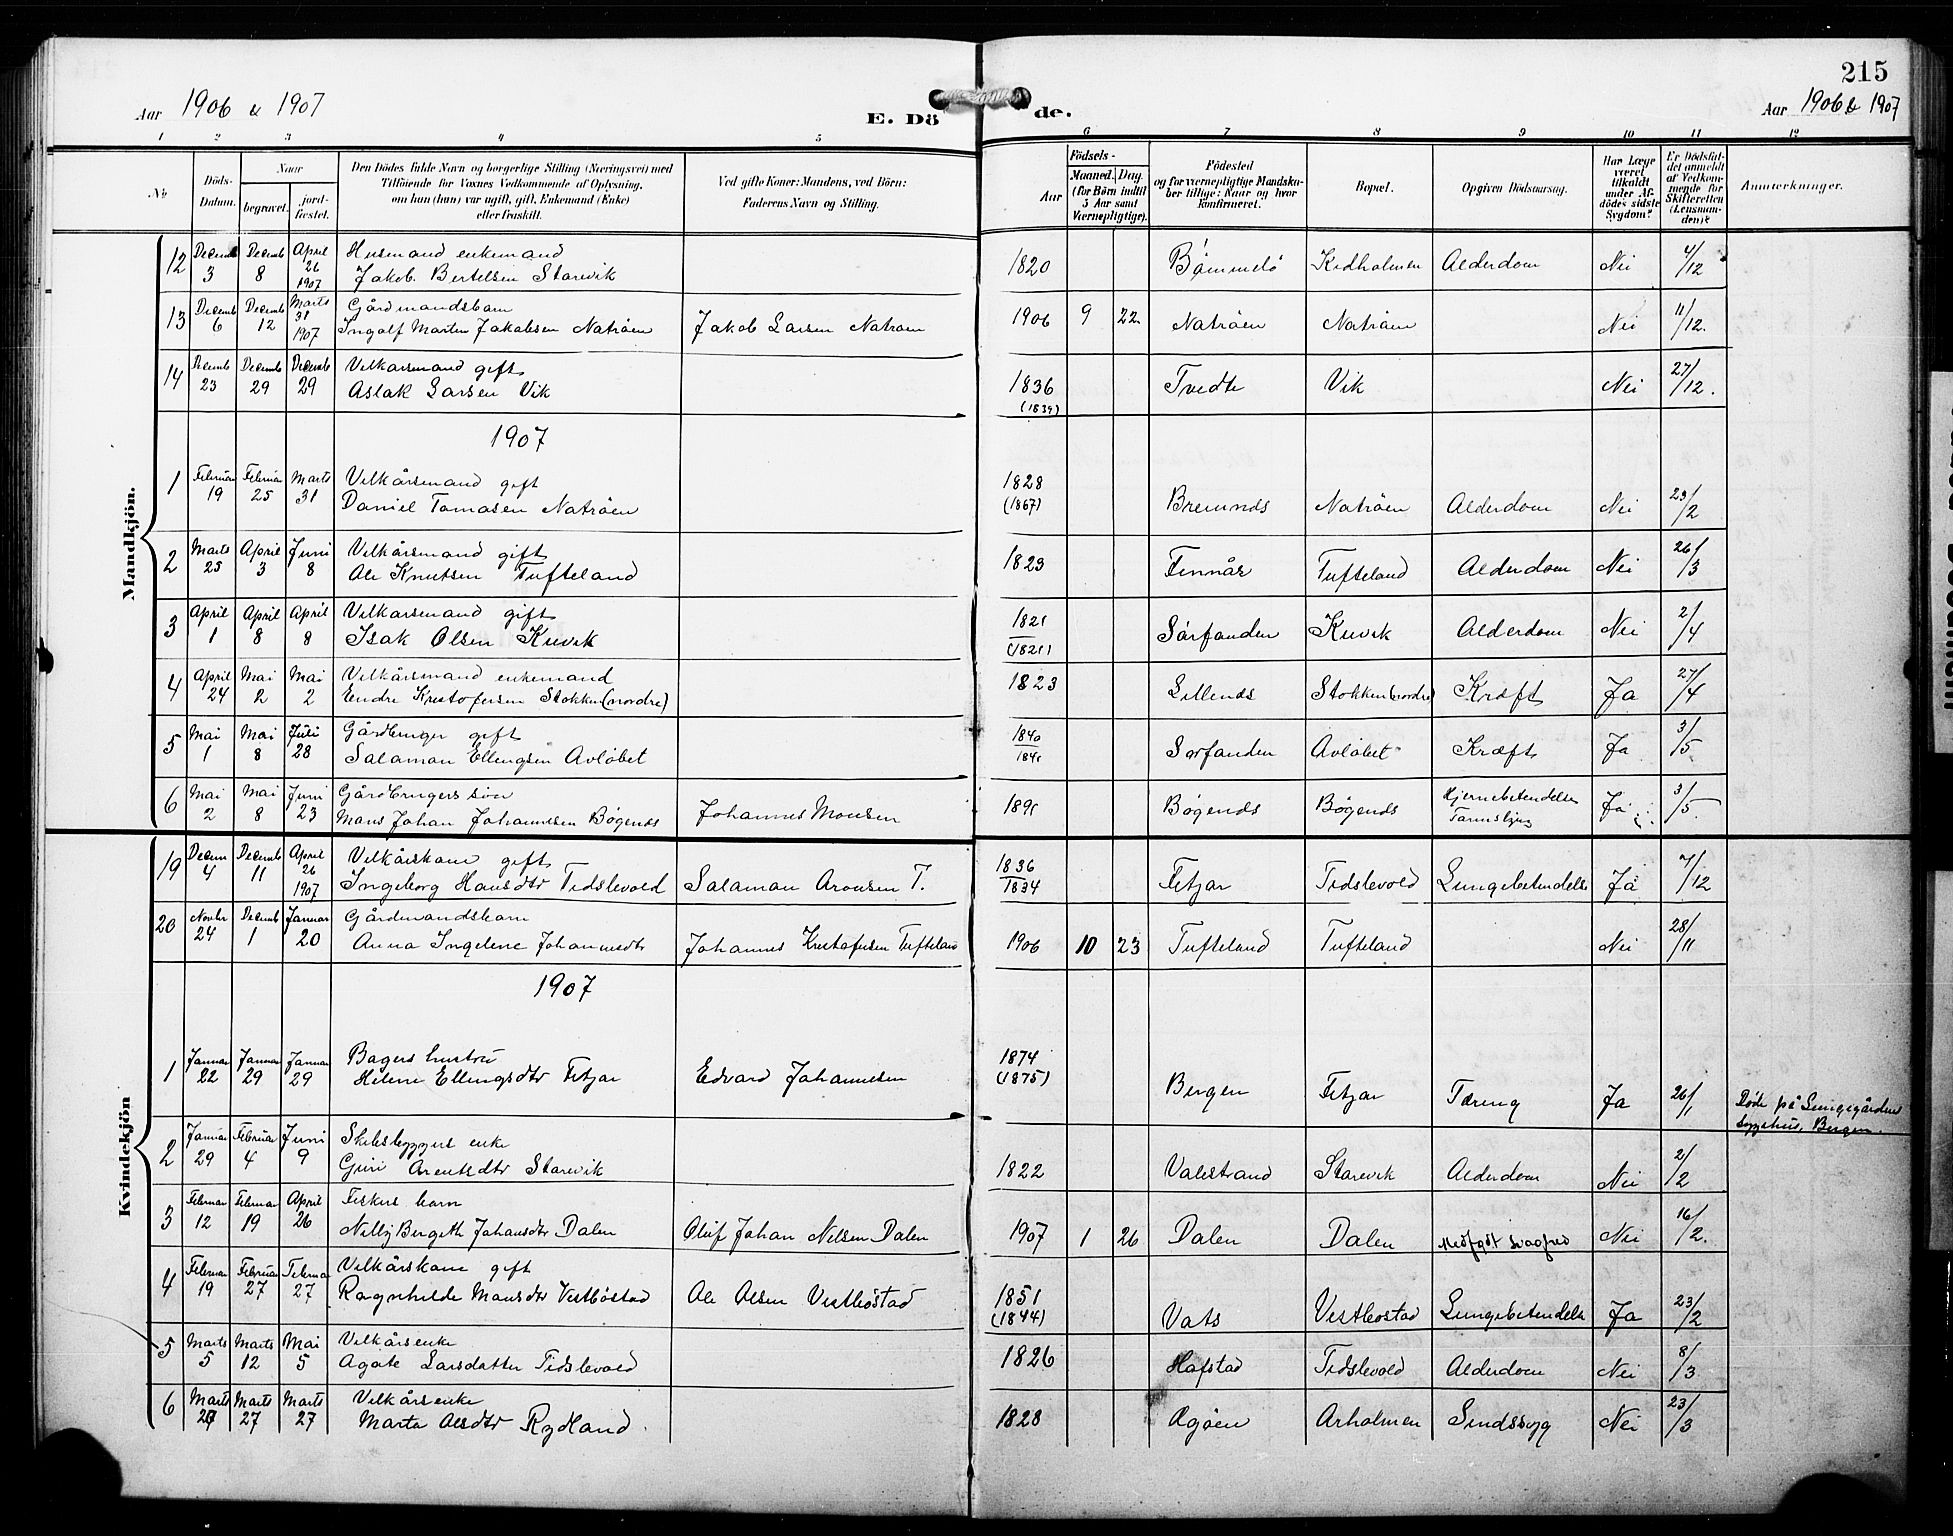 215
Aar 1906 & 1907
E. Dö de.
Aar 1906 & 1907
1 2 3 4 5 6 7 8 9 10 11 12
No
Döds-Datum.
Naar
begravet.
jord-fæstet.
Den Dödes fulde Navn og borgerlige Stilling (Næringsvei) med
Tilföiende for Voxnes Vedkommende af Oplysning,
om han (hun) var ugift, gift, Enkemand (Enke)
eller fraskilt.
Ved gifte Koner: Mandens, ved Börn:
Faderens Navn og Stilling.
Födsels-
Aar
Maaned. Dag.
(for Börn indtil
5 Aar samt
Værnepligtige).
Födested
og for værnepligtige Mandska-
ber tillige: Naar og hvor
konfirmeret.
Bopæl.
Opgiven Dödsaarsag.
Har Læge
været
tilkaldt
under Af-
dödes sidste
Sygdom?
Er Dödsfal-
det anmeldt
af Vedkom-
mende for
Skifteretten
(Lensman-
den)?
Anmærkninger.
Mandkjön.
12 Decemb 3 Decemb 8 April 26 1907 Husmand enkemand
Jakob Bertelsen Starevik 1820 Bømmelø Kidholmen Alderdom Nei 4/12
13 Decemb 6 Decemb 12 Marts 31 1907 Gårdmandsbarn
Ingolf Martin Jakobsen Natrøen Jakob Larsen Natrøen 1906 9 22 Natrøen Natrøen Nei 11/12.
14 Decemb 23 Decemb 29 Decemb 29 Vilkarsmand gift
Aslak Larsen Vik 1836 (1839) Tvedte Vik Nei 27/12.
1907
1 Februar 19 Februar 25 Marts 31 Vilkårsmand gift
Daniel Tomasen Natrøen 1828 (1867) Bremnds Natrøen Alderdom Nei 23/2
2 Marts 25 April 3 Juni 8 Vilkårsmand gift
Ole Knutsen Tufteland 1823 Finnås Tufteland Alderdom Nei 26/3
3 April 1 April 8 April 8 Vilkarsmand gift
Isak Olsen Kuvik 1821 (1821) Sørfonden Kuvik Alderdom Nei 2/4
4 April 24 Mai 2 Mai 2 Vilkårsmand enkemand
Endre Kristofersen Stokken (nordre) 1823 Lillends Stokken (nordre) Kræft Ja 27/4
5 Mai 1 Mai 8 Juli 28 Gårdbruger gift
Salamon Ellengsen Avløbet 1840 Sørfonden Avløbet Kræft Ja 3/5
6 Mai 2 Mai 8 Juni 23 Gårdbrugers søn
Mons Johan Johannesen Bøgends Johannes Monsen Bøgends Bøgends Hjernebetendelse Ja 3/5
Kvindekjön
19 Decem 4 Decemb 11 April 26 1907 Vilkårskone gift
Ingeborg Hansdtr Tidslevold Salamon Aronsen T. 1836 1834 Fitjar Tidslevold Lungebetendelse Ja 7/12
20 Novbr 24 Decemb 1 Januar 20 Gårdmandsbarn
Anna Ingelene Johannesdtr Johannes Kristofersen Tufteland 1906 10 23 Tufteland Tufteland Nei 28/11
1907
1 Januar 22 Januar 29 Januar 29 Bagers hustru
Helene Ellengsdtr Fitjar Edvard Johannesen 1874 (1875) Bergen Fitjar Tæring Ja 26/1 Døde på Lungegårdens
sygehus, Bergen.
2 Januar 29 Februar 4 Juni 9 Skibsbyggers enke
Guri Arentsdtr Starevik 1822 Valestrand Starevik Alderdom Nei 2/2
3 Februar 12 Februar 19 April 26 Fiskers barn
Nilly Bergith Johansdtr Dalen Oluf Johan Nilsen Dalen 1907 1 26 Dalen Dalen Medfødt svaghed Nei 16/2.
4 Februar 19 Februar 27 Februar 27 Vilkårskone gift
Ragnhilde Monsdtr Vestbøstad Ole Olsen Vestbøstad 1851 (1844) Vats Vestbostad Lungebetendelse Ja 23/2
5 Marts 5 Marts 12 Mai 5 Vilkårsenke
Agate Larsdatter Tidslevold 1826 Hafstad Tidslevold Alderdom Nei 8/3
6 Marts Marts 27 Marts 27 Vilkårsenke
Marta Olsdtr Rydland. 1828 Agøen Arholmen Sindssyg Nei 23/3